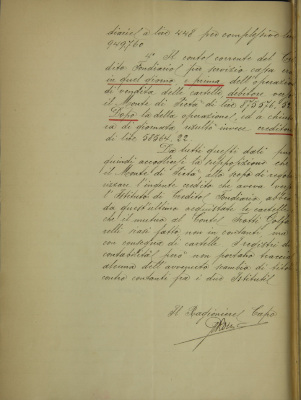 diario a lire 448 per complessive lire
949,760
2° Il conto corrente del Cre
dito Fondiario per servizio cassa era
in quel giorno e prima dell'operazione
di vendita delle cartelle debitore verso
il Monte di Pietà di lire 875576,52.
Dopo la detta operazione, ed a chiusu
ra di giornata risulta invece creditore
di lire 58564.22.
Da tutti questi dati può
quindi accogliersi la supposizione che
il Monte di Pietà, allo scopo di
credito che aveva verso
l'Istituto di Credito Fondiario, abbia
da quest'ultimo acquistate le cartelle,
che il mutuo al Conte Scotti
siasi fatto non in contanti, ma
con consegna di cartelle. I registri di
contabilità però non portano traccia
alcuna dell'avvenuto scambio di titoli
contro contante fra i due Istituti.
Il Ragioniere Capo